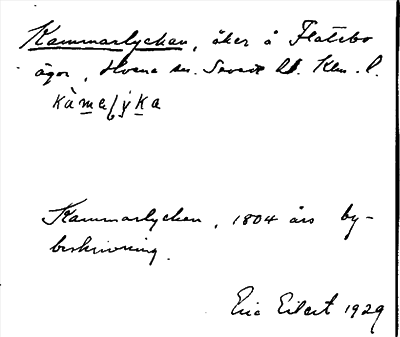 Kammarlyckan, åker å Flatebo
ägor, Hvena sn. Sevede hd. Klm. l.
kàmaļýka
Kammarlyckan, 1804 års by-
beskrivning.
Eric Eilert 1929